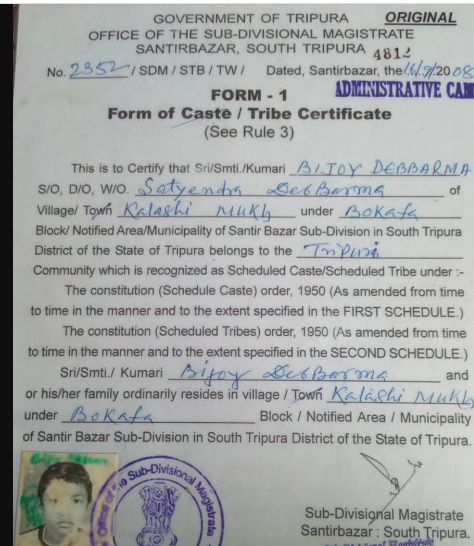 GOVERNMENT OF TRIPURA ORIGINAL
OFFICE OF THE SUB-DIVISIONAL MAGISTRATE
SANTIRBAZAR, SOUTH TRIPURA 4812
No. 2352 / SDM / STB / TW / Dated, Santirbazar, the 16/9/2008
ADMINISTRATIVE CAM
FORM - 1
Form of Caste / Tribe Certificate
(See Rule 3)
This is to Certify that Sri/Smti./Kumari BIJOY DEBBARMA
S/O, D/O, W/O. Satyendra DebBarma of
Village/ Town Kalashi Mukh under Bokafa
Block/ Notified Area/Municipality of Santir Bazar Sub-Division in South Tripura
District of the State of Tripura belongs to the Tripuri
Community which is recognized as Scheduled Caste/Scheduled Tribe under :-
The constitution (Schedule Caste) order, 1950 (As amended from time
to time in the manner and to the extent specified in the FIRST SCHEDULE.)
The constitution (Scheduled Tribes) order, 1950 (As amended from time
to time in the manner and to the extent specified in the SECOND SCHEDULE.)
Sri/Smti./ Kumari Bijoy DebBarma and
or his/her family ordinarily resides in village / Town Kalashi Mukh
under Bokafa Block / Notified Area / Municipality
of Santir Bazar Sub-Division in South Tripura District of the State of Tripura.
Office of the Sub-Divisional Magistrate
Sub-Divisional Magistrate
Santirbazar : South Tripura.